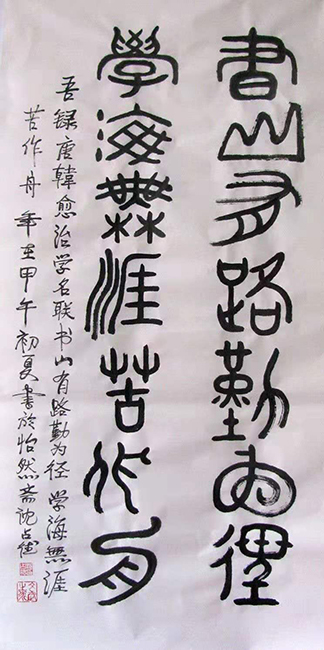 書山有路勤為徑
學海無涯苦作舟
吾録唐韓愈治学名联书山有路勤为径学海無涯
苦作舟年在甲午初夏書於怡然斋沈占佳